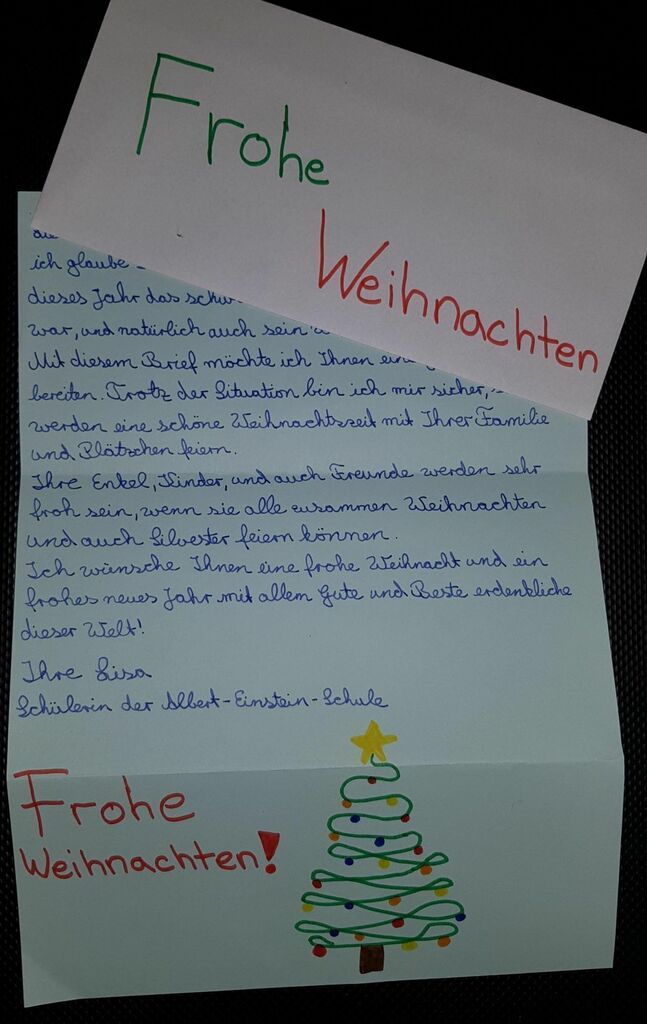 Frohe
Weihnachten
ich glaube
dieses Jahr das
war, und natürlich auch sein
Mit diesem Brief möchte ich Ihnen
bereiten. Trotz der Situation bin ich mir sicher,
werden eine schöne Weihnachtszeit mit Ihrer Familie
und Plätzchen feiern.
Ihre Enkel, Kinder, und auch Freunde werden sehr
froh sein, wenn sie alle zusammen Weihnachten
und auch Silvester feiern können.
Ich wünsche Ihnen eine frohe Weihnacht und ein
frohes neues Jahr mit allem Gute und Beste erdenkliche
dieser Welt!
Ihre Lisa
Schülerin der Albert-Einstein-Schule
Frohe
Weihnachten!